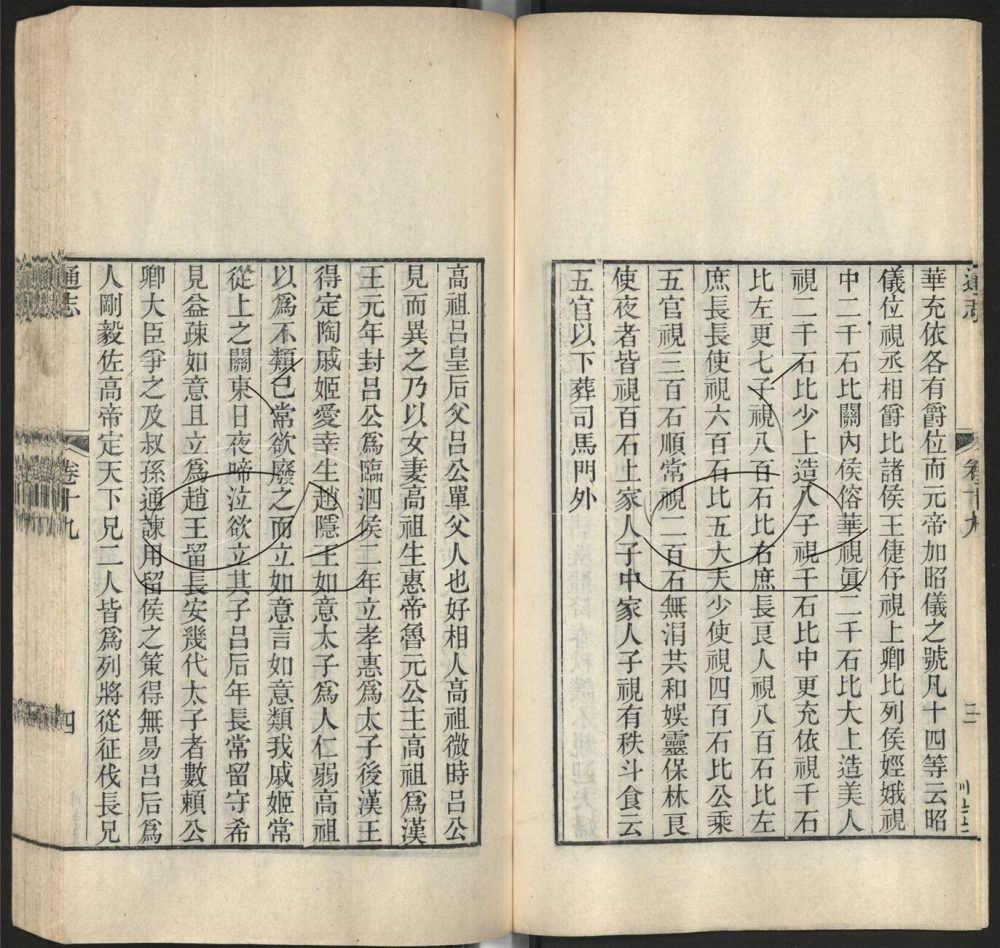 通志
卷十九
三
華充依各有爵位而元帝加昭儀之號凡十四等云昭
儀位視丞相爵比諸侯王倢伃視上卿比列侯娙娥視
中二千石比關內侯傛華視眞二千石比大上造美人
視二千石比少上造八子視千石比中更充依視千石
比左更七子視八百石比右庶長良人視八百石比左
庶長長使視六百石比五大夫少使視四百石比公乘
五官視三百石順常視二百石無涓共和娛靈保林良
使夜者皆視百石上家人子中家人子視有秩斗食云
五官以下葬司馬門外
高祖呂皇后父呂公單父人也好相人高祖微時呂公
見而異之乃以女妻高祖生惠帝魯元公主高祖爲漢
王元年封呂公爲臨泗侯二年立孝惠爲太子後漢王
得定陶戚姬愛幸生趙隱王如意太子爲人仁弱高祖
以爲不類己常欲廢之而立如意言如意類我戚姬常
從上之關東日夜啼泣欲立其子呂后年長常留守希
見益疎如意且立爲趙王留長安幾代太子者數賴公
卿大臣爭之及叔孫通諫用留侯之策得無易呂后爲
人剛毅佐高帝定天下兄二人皆爲列將從征伐長兄
通志
卷十九
四